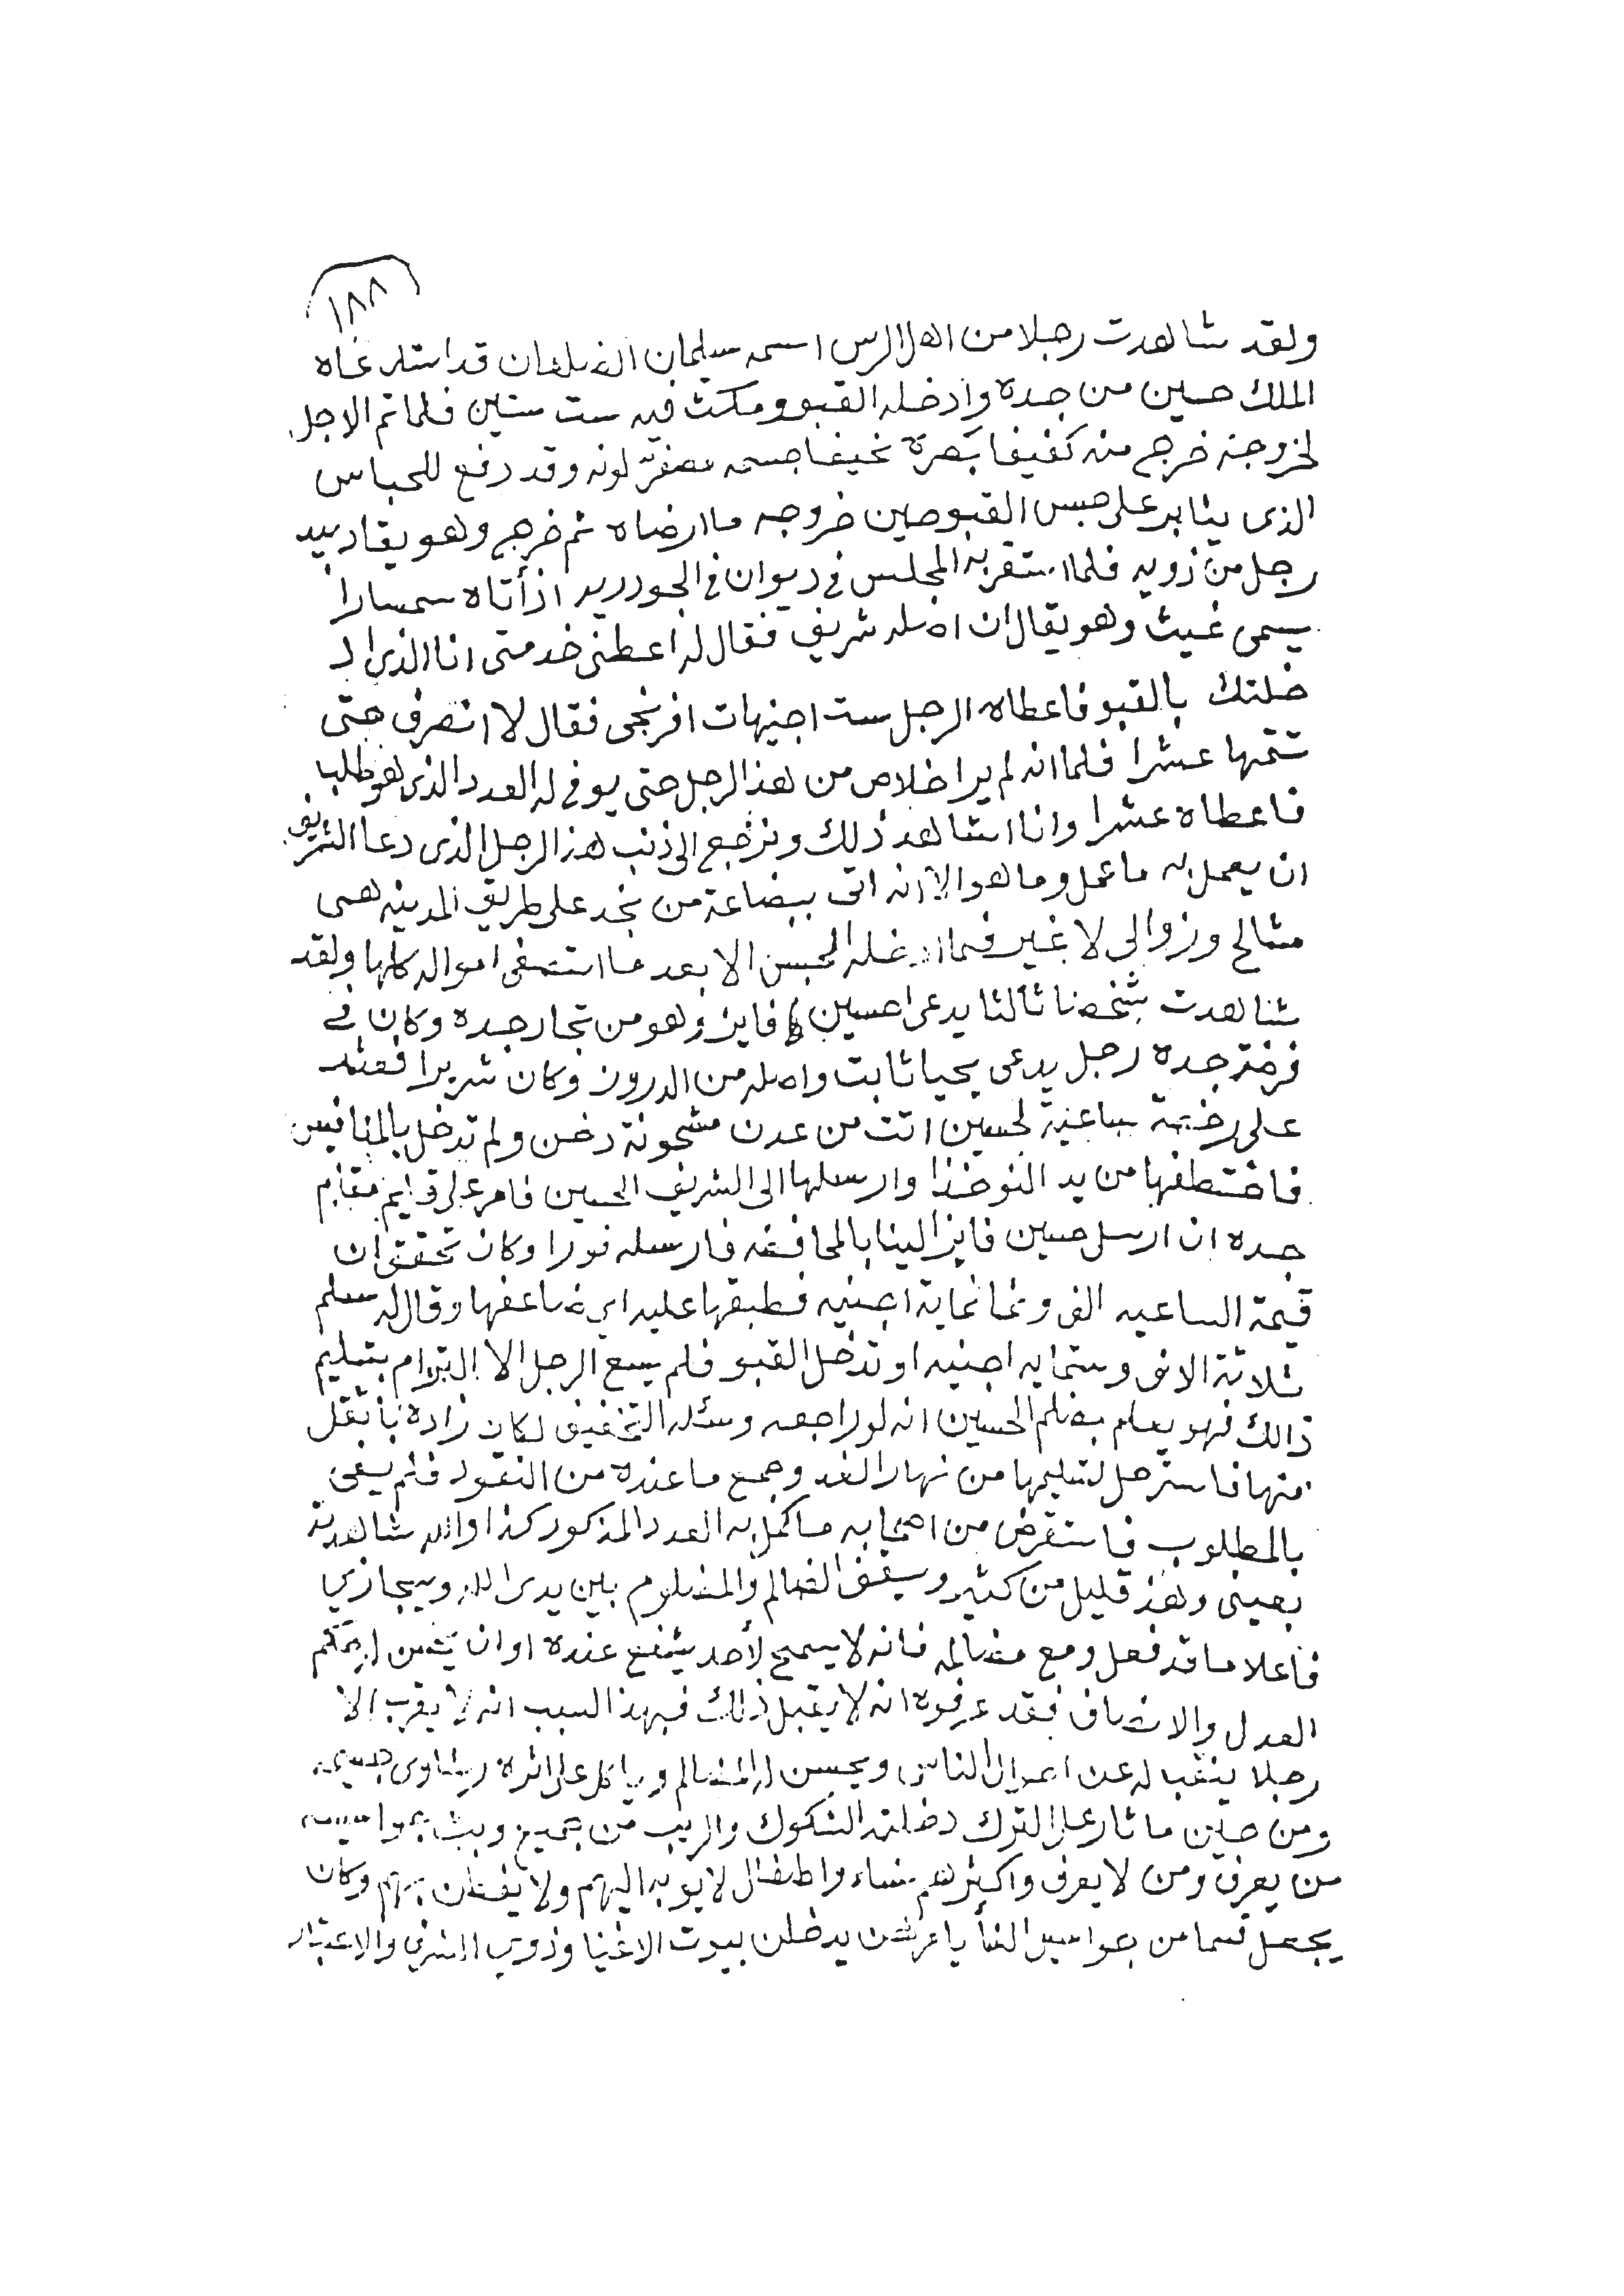 ١٨٨
ولقد شاهدت رجلا من اهل الرس اسمه سليمان قد استدعاه
الملك حسين من جده وادخله القبو ومكث فيه ست سنين فلما تم الاجل
لخروجه خرج منه كفيفا بصره نحيفا جسمه مصفرة لونه وقد دفع للحباس
الذي يثابر على حبس القبو حين خروجه ما ارضاه ثم خرج وهو يقاد بيد
رجل من ذويه فلما استقر به المجلس في ديوان في الجودريه اذ أتاه سمسارا
يسمى غيث وهو يقال ان اصله شريف فقال له اعطني خدمتي انا الذي اد
خلتك بالقبو فاعطاه الرجل ست اجنيهات افرنجي فقال لا انصرف حتى
تتمها عشرا فلما انه لم يرا خلاص من هذ الرجل حتى يوفي له العدد الذي هو طلبا
فاعطاه عشرا وانا اشاهد ذلك ونرجع الى ذنب هذ الرجل الذي دعا الشريف
ان يعمل به ما عمل وما هو الا انه اتى ببضاعة من نجد على طريق المدينه هي
مشالح وزوالي لا غير فما ادخله الحبس الا بعد ما استصفى امواله كلها ولقد
شاهدت شخصا ثالثا يدعى احسين فايز وهو من تجار جده وكان في
فرضة جده رجل يدعى يحيا ثابت واصله من الدروز وكان شريرا فعثر
على ساعية لحسين اتت من عدن مشحونة دخن ولم تدخل بالمنافيس
فاختطفها من يد النوخذا وارسلها الى الشريف الحسين فامر على قايم مقام
جده ان ارسل حسين فايز الينا بالمحافضه فارسله فورا وكان تحقق ان
قيمة الساعيه الف وثمانماية اجنيه فطبقها عليه اي ضاعفها وقال له سلم
ثلاثة الاف وستمايه اجنيه او تدخل القبو فلم يسع الرجل الا التزام بتسليم
ذالك فهو يعلم بضلم الحسين انه لو راجعه وسئله التخفيف لكان زاده بأثقل
منها فاسترحل لتسليمها من نهار الغد وجمع ما عنده من النقود فلم يفي
بالمطلوب فاستقرض من اصحابه ما كمل به العدد المذكور كذا والله شاهدته
بعيني وهذ قليل من كثير وسيقف الضالم والمضلوم بين يدي الله ويجازي
فاعلا ما قد فعل ومع مضالمه فانه لا يسمح لأحد يشفع عنده او ان
العدل والانصاف فقد عرفوه انه لا يقبل ذلك فبهذا السبب انه لا يقرب الا
رجلا ينقب له عن اموال الناس ويحسن له المضالم وياكل على اثره رشاوي جسيمه
ومن حين ما ثار على الترك دخلته الشكوك والريب من جميع وبث جواسيسه
من يعرف ومن لا يعرف واكثرهم نساء واطفال لا يوبه اليهم ولا يفطن بهم وكان
يجعل قسما من جواسيس يدخلن بيوت الاغنيا وذوي الشرف والاعتبار